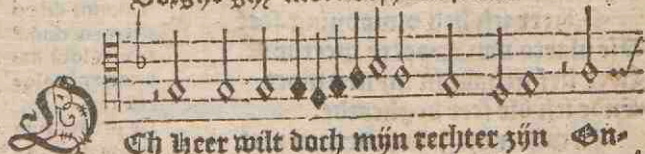 OCh Heer wilt doch mijn rechter zijn On-